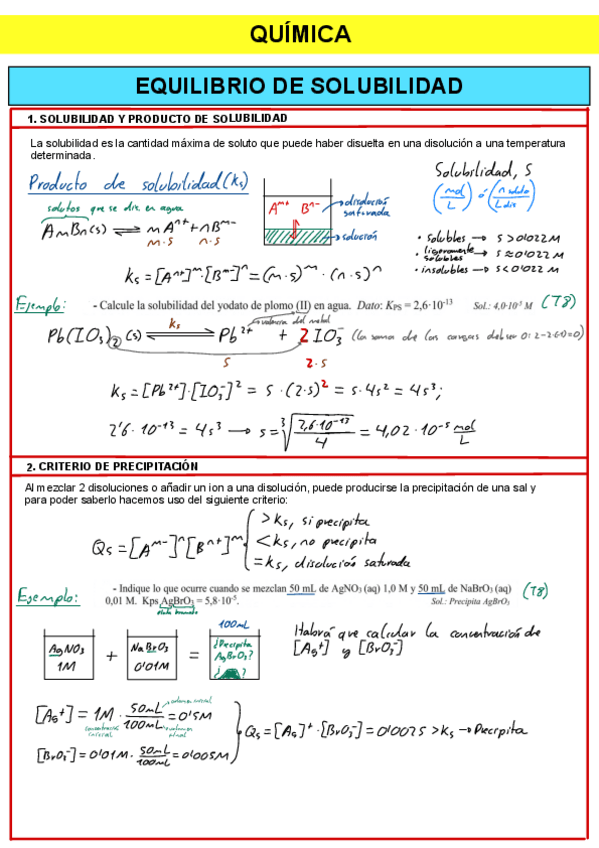 QUÍMICA
EQUILIBRIO DE SOLUBILIDAD
1. SOLUBILIDAD Y PRODUCTO DE SOLUBILIDAD
La solubilidad es la cantidad máxima de soluto que puede haber disuelta en una disolución a una temperatura
determinada.
Producto de solubilidad (ks)
Solubilidad, S
(mol/L) ó (n soluto/L dis)
solutos que se dis. en agua
AmBn(s) ⇌ mAⁿ⁺ + nBᵐ⁻
m·s n·s
Aᵐ⁺ Bⁿ⁻
disolución
saturada
solución
• solubles → S > 0'022 M
• ligeramente
solubles → S ≈ 0'022 M
• insolubles → S < 0'022 M
ks = [Aⁿ⁺]ᵐ · [Bᵐ⁻]ⁿ = (m·s)ᵐ · (n·s)ⁿ
Ejemplo: - Calcule la solubilidad del yodato de plomo (II) en agua. Dato: KPS = 2,6·10⁻¹³ Sol.: 4,0·10⁻⁵ M (T8)
valencia del metal
Pb(IO₃)₂ (s) ⇌ ks Pb²⁺ + 2 IO₃⁻ (la suma de las cargas debe ser 0: 2-2·(1)=0)
s 2·s
ks = [Pb²⁺]·[IO₃⁻]² = s·(2·s)² = s·4s² = 4s³;
2'6·10⁻¹³ = 4s³ → s = ∛(2,6·10⁻¹³/4) = 4,02·10⁻⁵ mol/L
2. CRITERIO DE PRECIPITACIÓN
Al mezclar 2 disoluciones o añadir un ion a una disolución, puede producirse la precipitación de una sal y
para poder saberlo hacemos uso del siguiente criterio:
> ks, si precipita
Qs = [Aᵐ⁻]ⁿ[Bⁿ⁺]ᵐ < ks, no precipita
= ks, disolución saturada
Ejemplo: - Indique lo que ocurre cuando se mezclan 50 mL de AgNO₃ (aq) 1,0 M y 50 mL de NaBrO₃ (aq) (T8)
0,01 M. Kps AgBrO₃ = 5,8·10⁻⁵. Sol.: Precipita AgBrO₃
100mL
AgNO₃
1M
+
NaBrO₃
0'01M
=
¿Precipita
AgBrO₃?
Habrá que calcular la concentración de
[Ag⁺] y [BrO₃⁻]
volumen inicial
[Ag⁺] = 1M · 50mL/100mL = 0'5M
concentración
inicial
volumen
final
Qs = [Ag]⁺·[BrO₃⁻] = 0'0025 > ks → Precipita
[BrO₃⁻] = 0'01M · 50mL/100mL = 0'005M